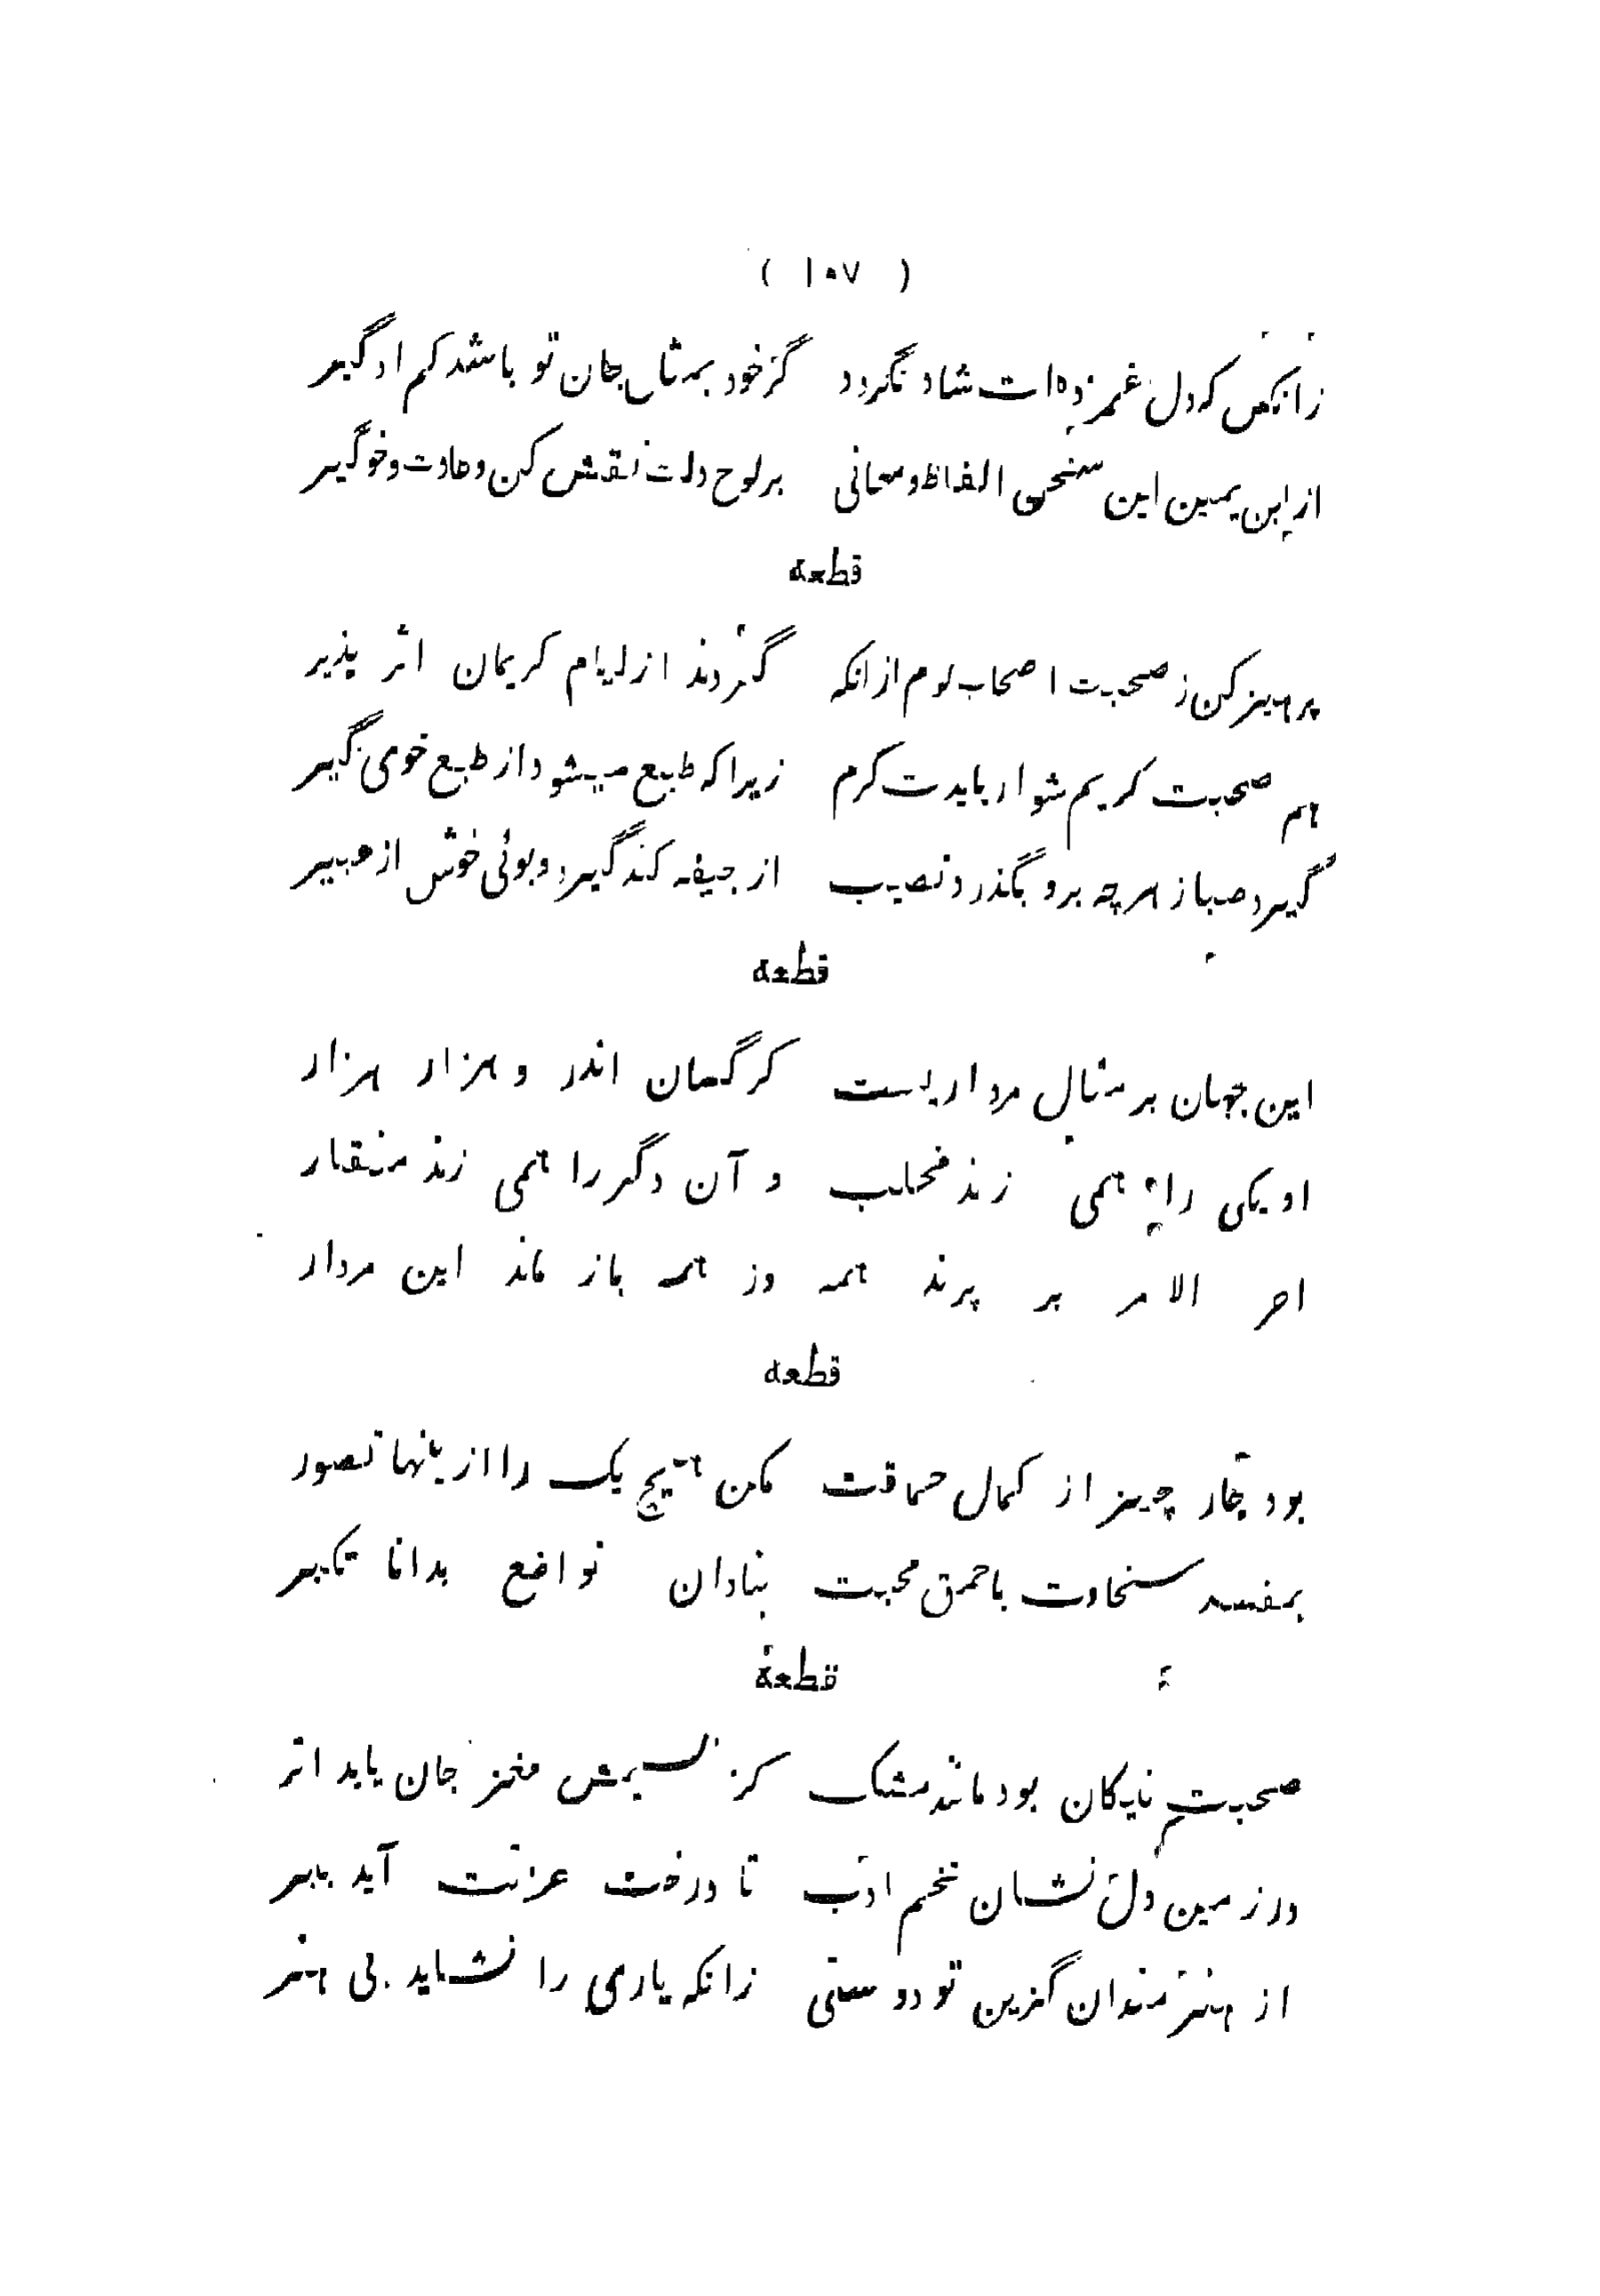 ( ۱۰۷ )
زانکس که دل غمزده‌ات شاد نگردد گر خود بمثال جان تو باشد کم او گیر
از ابن یمین این سخن الفاظ و معانی بر لوح دلت نقش کن و عادت و خو گیر
قطعه
پرهیز کن ز صحبت اصحاب لوم از انکه گردند از لیام کریمان اثر پذیر
هم صحبت کریم شو ار بایدت کرم زیرا که طبع میشود از طبع خوی گیر
گیرد صبا ز هر چه برو بگذرد نصیب از جیفه کند گیرد و بوئی خوش از عبیر
قطعه
این جهان بر مثال مرداریست کرگسان اندر و هزار هزار
او یکی را همی زند مخلب و آن دگر را همی زند منقار
اخر الامر بر پرند همه وز همه باز ماند این مردار
قطعه
بود چار چیز از کمال حماقت مکن هیچ یک را از ینها تصور
بمفسد سخاوت باحمق محبت بنادان تواضع بدانا تکبر
قطعه
صحبت نیکان بود مانند مشک کز نسیمش مغز جان یابد اثر
در زمین دل نشان تخم ادب تا درخت عزتت آید ببر
از هنرمندان گزین تو دوستی زانکه یاری را نشاید بی هنر